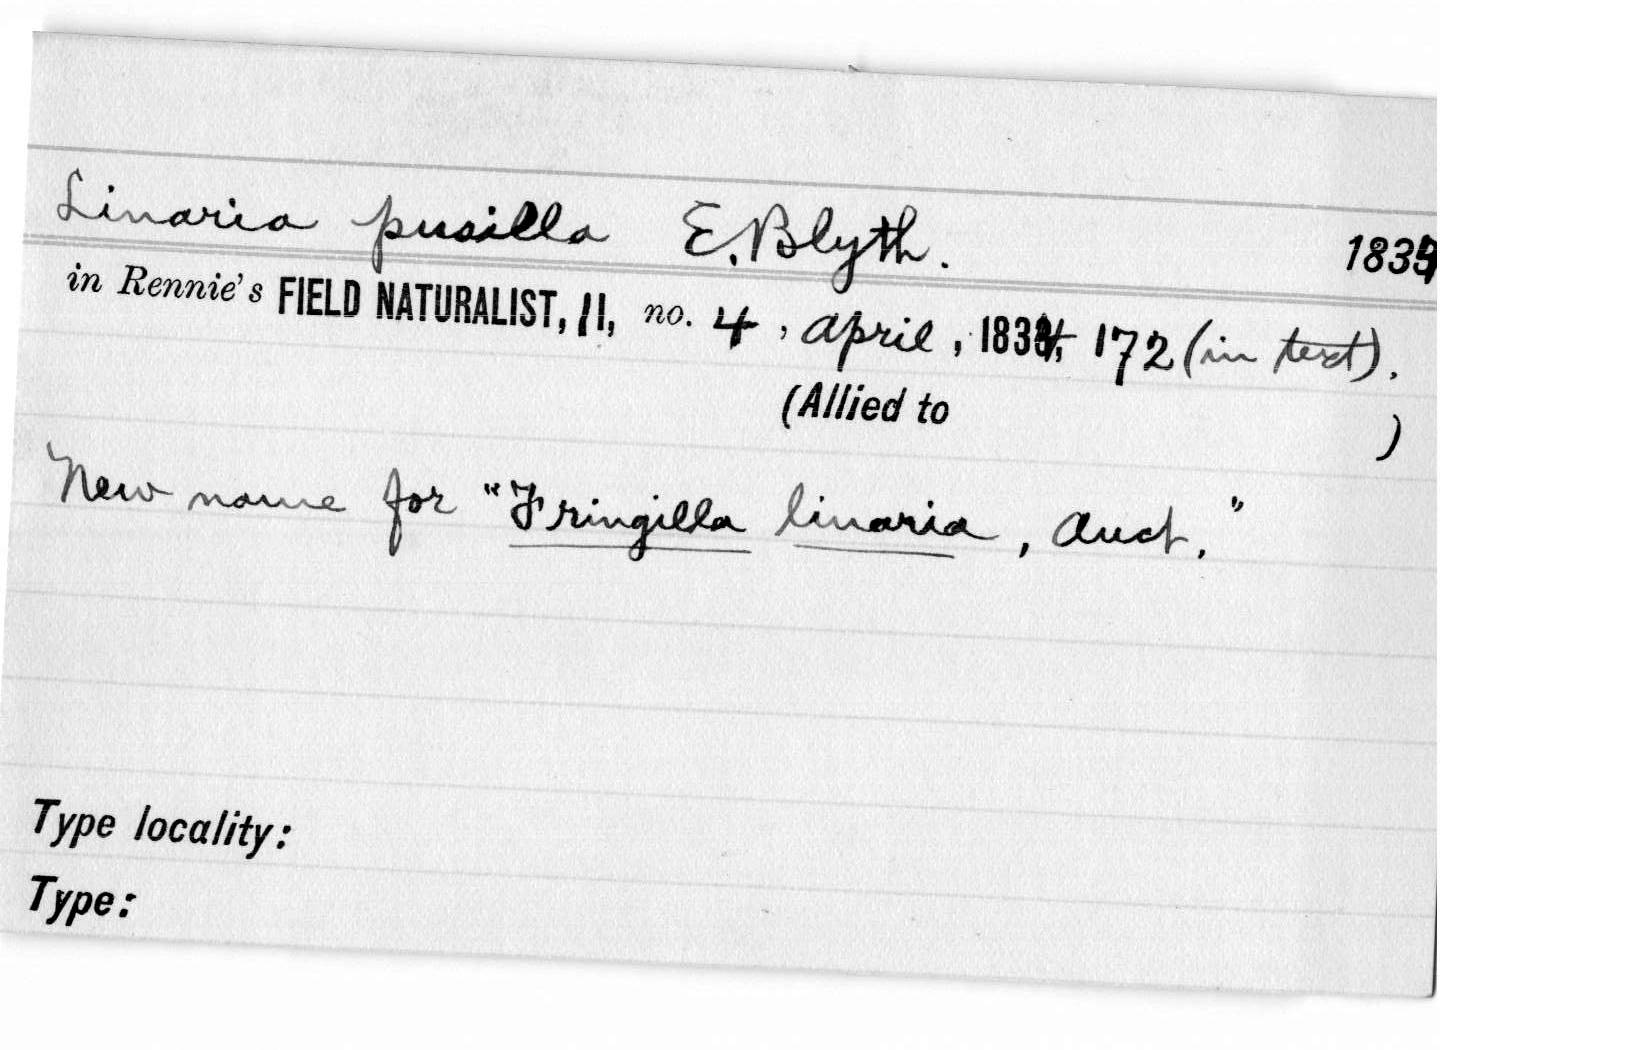 Linaria pusilla E. Blyth. 1834
in Rennie's FIELD NATURALIST, II, no. 4, April, 1834, 172 (in text).
(Allied to )
New name for "Fringilla linaria, Auct."
Type locality:
Type: